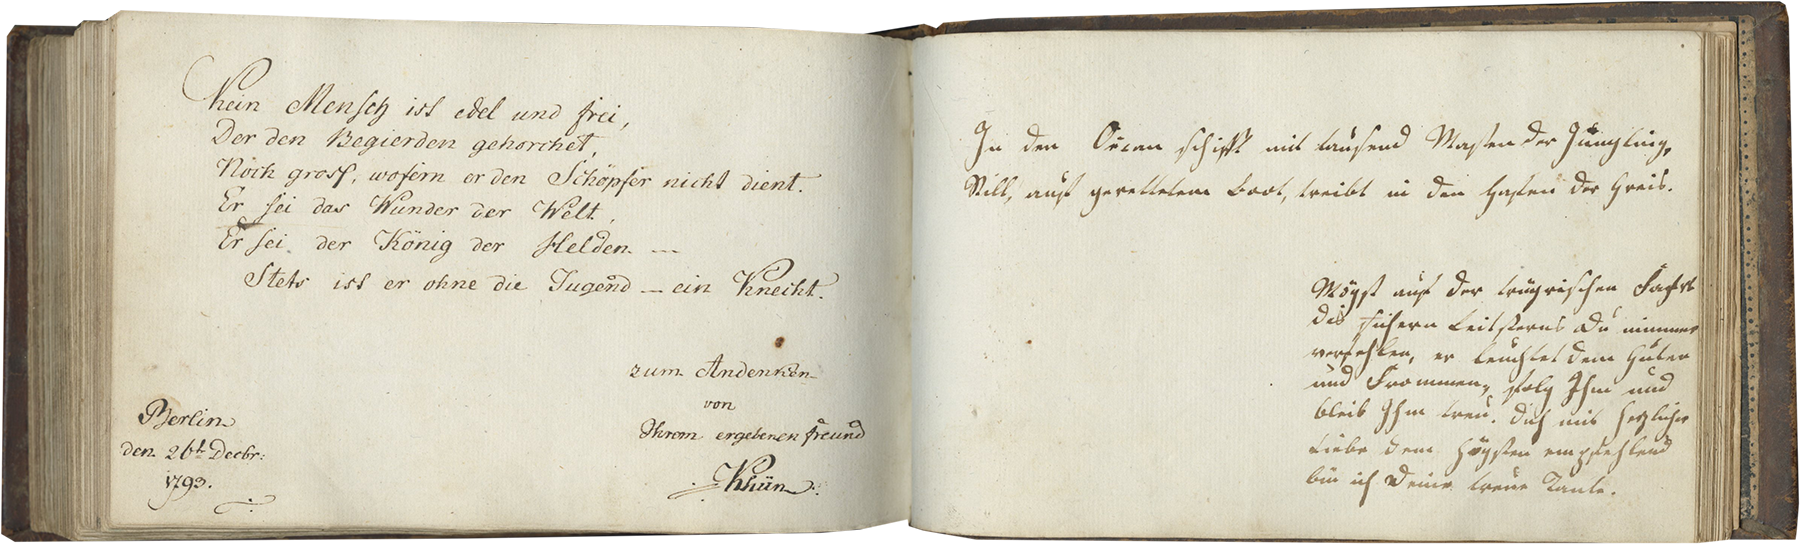 Kein Mensch ist edel und frei,
Der den Begierden gehorchet,
Noch gross, wofern er den Schöpfer nicht dient.
Er sei das Wunder der Welt,
Er sei der König der Helden —
Stets ist er ohne die Tugend — ein Knecht.
zum Andenken
von
Ihrem ergebenen freund
Khün
Berlin
den 26t Decbr:
1793.
In den Ocean schifft mit tausend Masten der Jüngling,
Still, auf gerettetem Boot, treibt in den Hafen der Greis.
Mögst auf der trügrischen Fahrt
des sichern Leitsterns Du nimmer
verfehlen, er leuchtet dem Guten
und Frommen, folg Ihm und
bleib Ihm treu. Dich mit herzlicher
Liebe dem Högsten empfehlend
bin ich Deine treue Tante.